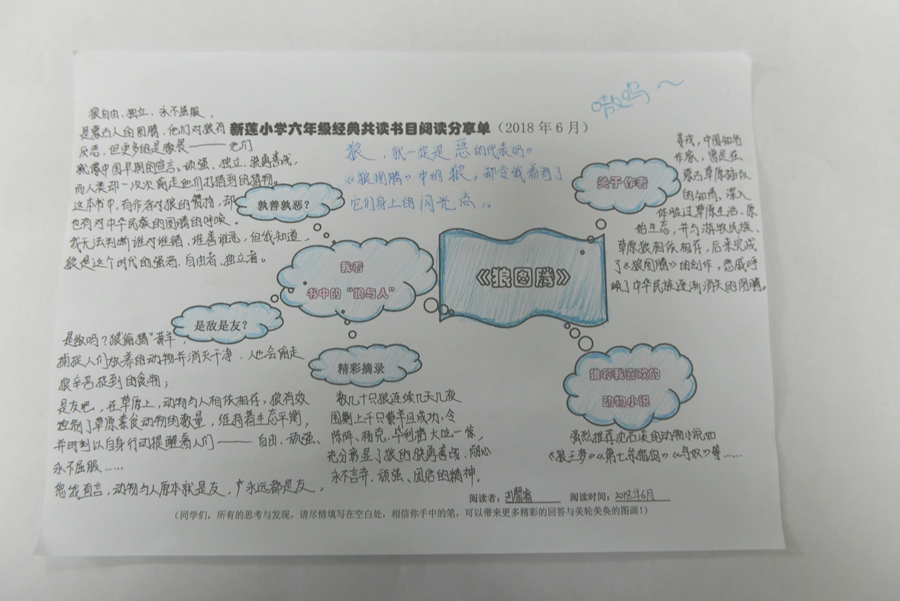 嗷呜～
新莲小学六年级经典共读书目阅读分享单（2018年6月）
狼，就一定是恶的代表吗？
《狼图腾》中的狼，却令我看到了
它们身上的闪光点。
狼自由、独立、永不屈服，
是蒙古人的图腾，他们对狼有
厌恶，但更多的是敬畏——他们
就像中国早期的宣言，顽强、独立、骁勇善战，
而人类却一次次
这本书中，有作者对狼的赞扬，却
也有对中华民族的图腾的呼唤。
我无法判断谁对谁错，谁善谁恶，但我知道，
狼是这个时代的强者、自由者、独立者。
孰善孰恶？
关于作者
姜戎，中国知名
作家，曾是在
蒙古草原插队
的知青，深入
体验过草原生活、原
始生态，并与游牧民族、
草原狼相依相存，后来完成
了《狼图腾》的创作，
中华民族逐渐消失的图腾。
我看
书中的“狼与人”
《狼图腾》
是敌是友？
是敌吗？狼
捕捉人们放养的动物并消灭干净，人也会偷走
狼辛苦捉到的食物；
是友吧，在草原上，动物与人相依相存，狼有效
控制了草原素食动物的数量，维持着生态平衡，
并时刻以自身行动提醒着人们——自由、顽强、
永不屈服……
动物与人原本就是友，永远都是友，
精彩摘录
数几十只狼连续几天几夜
围剿上千只黄羊且成功，令
阵阵、杨克、毕利格大吃一惊，
充分彰显了狼的骁勇善战、耐心
永不言弃、顽强、团结的精神。
推荐我喜欢的
动物小说
强烈推荐沈石溪的动物小说如
《狼王梦》《第七条猎狗》《鸟奴》等……
阅读者：
阅读时间：2018年6月
（同学们，所有的思考与发现，请尽情填写在空白处，相信你手中的笔，可以带来更多精彩的回答与美轮美奂的图画！）